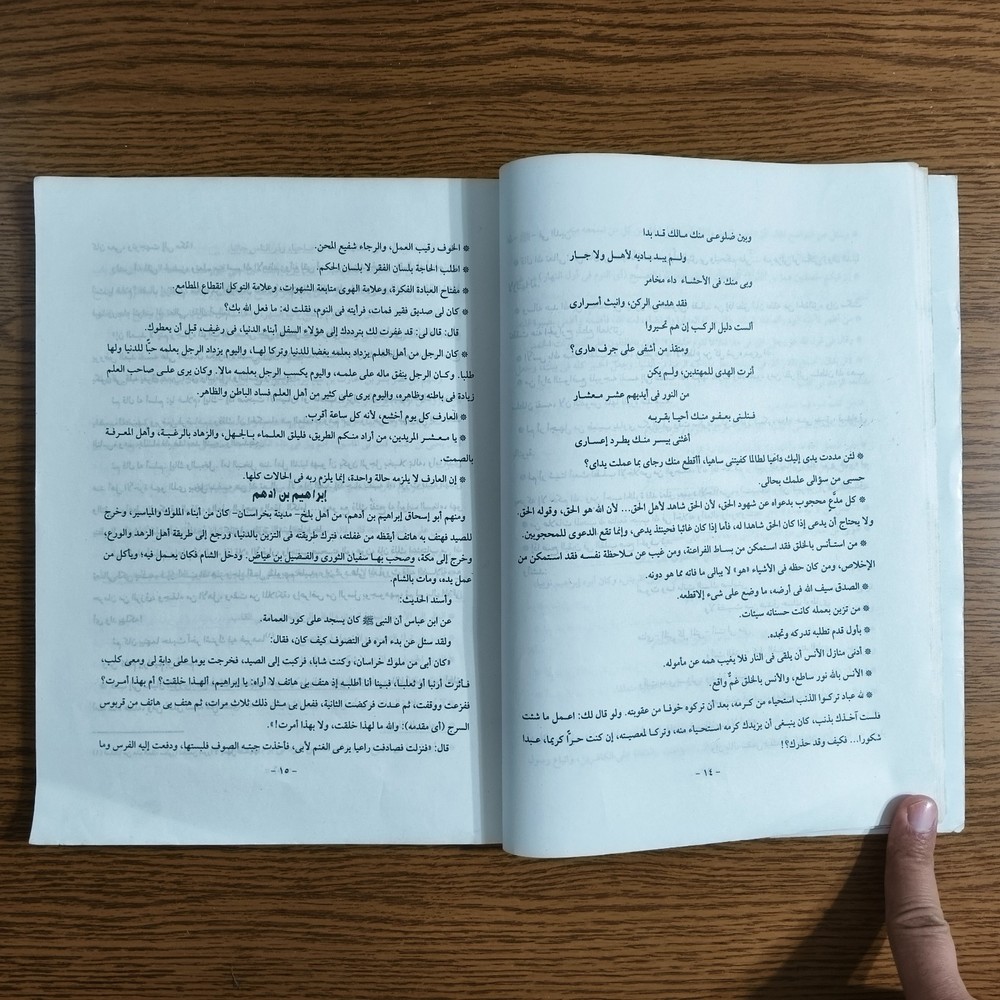 وبين ضلوعى منك مالك قد بدا
ولم يبد باديه لأهل ولا جار
وبى منك فى الأحشاء داء مخامر
فقد هدمنى الركن، وانبث أسرارى
ألست دليل الركب إن هم تحيروا
ومنقذ من أشفى على جرف هارى؟
أنرت الهدى للمهتدين، ولم يكن
من النور فى أيديهم عشر معشار
فنلنى بعفو منك أحيا بقربه
أغثنى بيسر منك يطرد إعسارى
* لئن مددت يدى إليك داعيا لطالما كفيتنى ساهيا، أأقطع منك رجاى بما عملت يداى؟
حسبى من سؤالى علمك بحالى.
* كل مدَّعٍ محجوب بدعواه عن شهود الحق، لأن الحق شاهد لأهل الحق... لأن الله هو الحق، وقوله الحق.
ولا يحتاج أن يدعى إذا كان الحق شاهدا له، فأما إذا كان غائبا فحينئذ يدعى، وإنما تقع الدعوى للمحجوبين.
* من استأنس بالخلق فقد استمكن من بساط الفراعنة، ومن غيب عن ملاحظة نفسه فقد استمكن من
الإخلاص، ومن كان حظه فى الأشياء «هو» لا يبالى ما فاته مما هو دونه.
* الصدق سيف الله فى أرضه، ما وضع على شىء إلا قطعه.
* من تزين بعمله كانت حسناته سيئات.
* بأول قدم تطلبه تدركه وتجده.
* أدنى منازل الأنس أن يلقى فى النار فلا يغيب همه عن مأموله.
* الأنس بالله نور ساطع، والأنس بالخلق غمٌّ واقع.
* لله عباد تركوا الذنب استحياء من كرمه، بعد أن تركوه خوفا من عقوبته. ولو قال لك: اعمل ما شئت
فلست آخذك بذنب، كان ينبغى أن يزيدك كرمه استحياء منه، وتركا لمعصيته، إن كنت حرّاً كريما، عبدا
شكورا... فكيف وقد حذرك؟!
- ١٤ -
* الخوف رقيب العمل، والرجاء شفيع المحن.
* اطلب الحاجة بلسان الفقر لا بلسان الحكم.
* مفتاح العبادة الفكرة، وعلامة الهوى متابعة الشهوات، وعلامة التوكل انقطاع المطامع.
* كان لى صديق فقير فمات، فرأيته فى النوم، فقلت له: ما فعل الله بك؟
قال: قال لى: قد غفرت لك بترددك إلى هؤلاء السفل أبناء الدنيا، فى رغيف، قبل أن يعطوك.
* كان الرجل من أهل العلم يزداد بعلمه بغضا للدنيا وتركا لها، واليوم يزداد الرجل بعلمه حبّاً للدنيا ولها
طلبا. وكان الرجل ينفق ماله على علمه، واليوم يكسب الرجل بعلمه مالا. وكان يرى على صاحب العلم
زيادة فى باطنه وظاهره، واليوم يرى على كثير من أهل العلم فساد الباطن والظاهر.
* العارف كل يوم أخشع، لأنه كل ساعة أقرب.
* يا معشر المريدين، من أراد منكم الطريق، فليلق العلماء بالجهل، والزهاد بالرغبة، وأهل المعرفة
بالصمت.
* إن العارف لا يلزمه حالة واحدة، إنما يلزم ربه فى الحالات كلها.
إبراهيم بن أدهم
ومنهم أبو إسحاق إبراهيم بن أدهم، من أهل بلخ- مدينة بخراسان- كان من أبناء الملوك والمياسير، وخرج
للصيد فهتف به هاتف أيقظه من غفلته، فترك طريقته فى التزين بالدنيا، ورجع إلى طريقة أهل الزهد والورع،
وخرج إلى مكة، وصحب بها سفيان الثورى والفضيل بن عياض. ودخل الشام فكان يعمل فيه؛ ويأكل من
عمل يده، ومات بالشام.
وأسند الحديث:
عن ابن عباس أن النبى ﷺ كان يسجد على كور العمامة.
ولقد سئل عن بدء أمره فى التصوف كيف كان، فقال:
«كان أبى من ملوك خراسان، وكنت شابا، فركبت إلى الصيد، فخرجت يوما على دابة لى ومعى كلب،
فأثرت أرنبا أو ثعلبا، فبينا أنا أطلبه إذ هتف بى هاتف لا أراه: يا إبراهيم، ألهذا خلقت؟ أم بهذا أمرت؟
ففزعت ووقفت، ثم عدت فركضت الثانية، ففعل بى مثل ذلك ثلاث مرات، ثم هتف بى هاتف من قربوس
السرج (أى مقدمه): والله ما لهذا خلقت، ولا بهذا أمرت!».
قال: «فنزلت فصادفت راعيا يرعى الغنم لأبى، فأخذت جبته الصوف فلبستها، ودفعت إليه الفرس وما
- ١٥ -